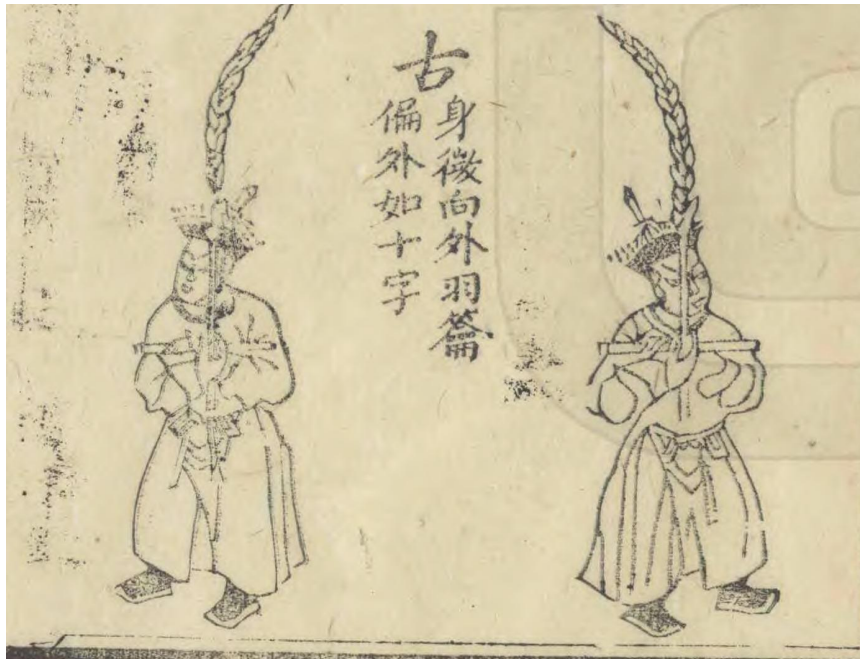 古
身微向外羽籥
偏外如十字